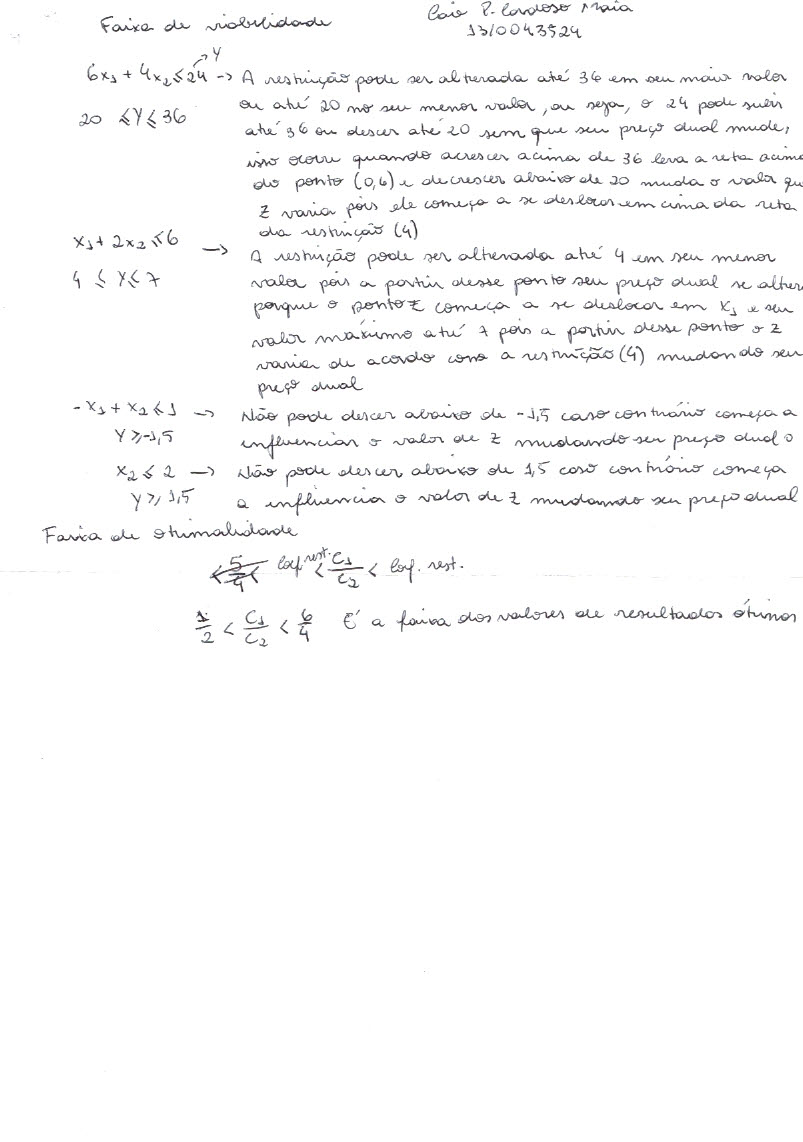 Faixa de viabilidade
Caio P. Cardoso Maia
13/0043524
Y
6x₁ + 4x₂ ≤ 24 → A restrição pode ser alterada até 36 em seu maior valor
20 ≤ Y ≤ 36 ou até 20 no seu menor valor, ou seja, o 24 pode subir
até 36 ou descer até 20 sem que seu preço dual mude,
isso ocorre quando acrescer acima de 36 leva a reta acima
do ponto (0,6) e decrescer abaixo de 20 muda o valor que
Z varia pois ele começa a se deslocar em cima da reta
da restrição (4)
x₁ + 2x₂ ≤ 6 → A restrição pode ser altherada até 4 em seu menor
4 ≤ Y ≤ 7 valor pois a partir desse ponto seu preço dual se alter
porque o ponto Z começa a se deslocar em x₁ e seu
valor máximo até 7 pois a partir desse ponto o Z
varia de acordo com a restrição (4) mudando seu
preço dual
-x₁ + x₂ ≤ 1 → Não pode descer abaixo de -1,5 caso contrário começa a
Y ≥ -1,5 influenciar o valor de Z mudando seu preço dual
x₂ ≤ 2 → Não pode descer abaixo de 1,5 caso contrário começa
Y ≥ 1,5 a influencia o valor de Z mudando seu preço dual
Faixa de otimalidade
Coef. rest. < C₁/C₂ < Coef. rest.
1/2 < C₁/C₂ < 6/4 É a faixa dos valores de resultados ótimos